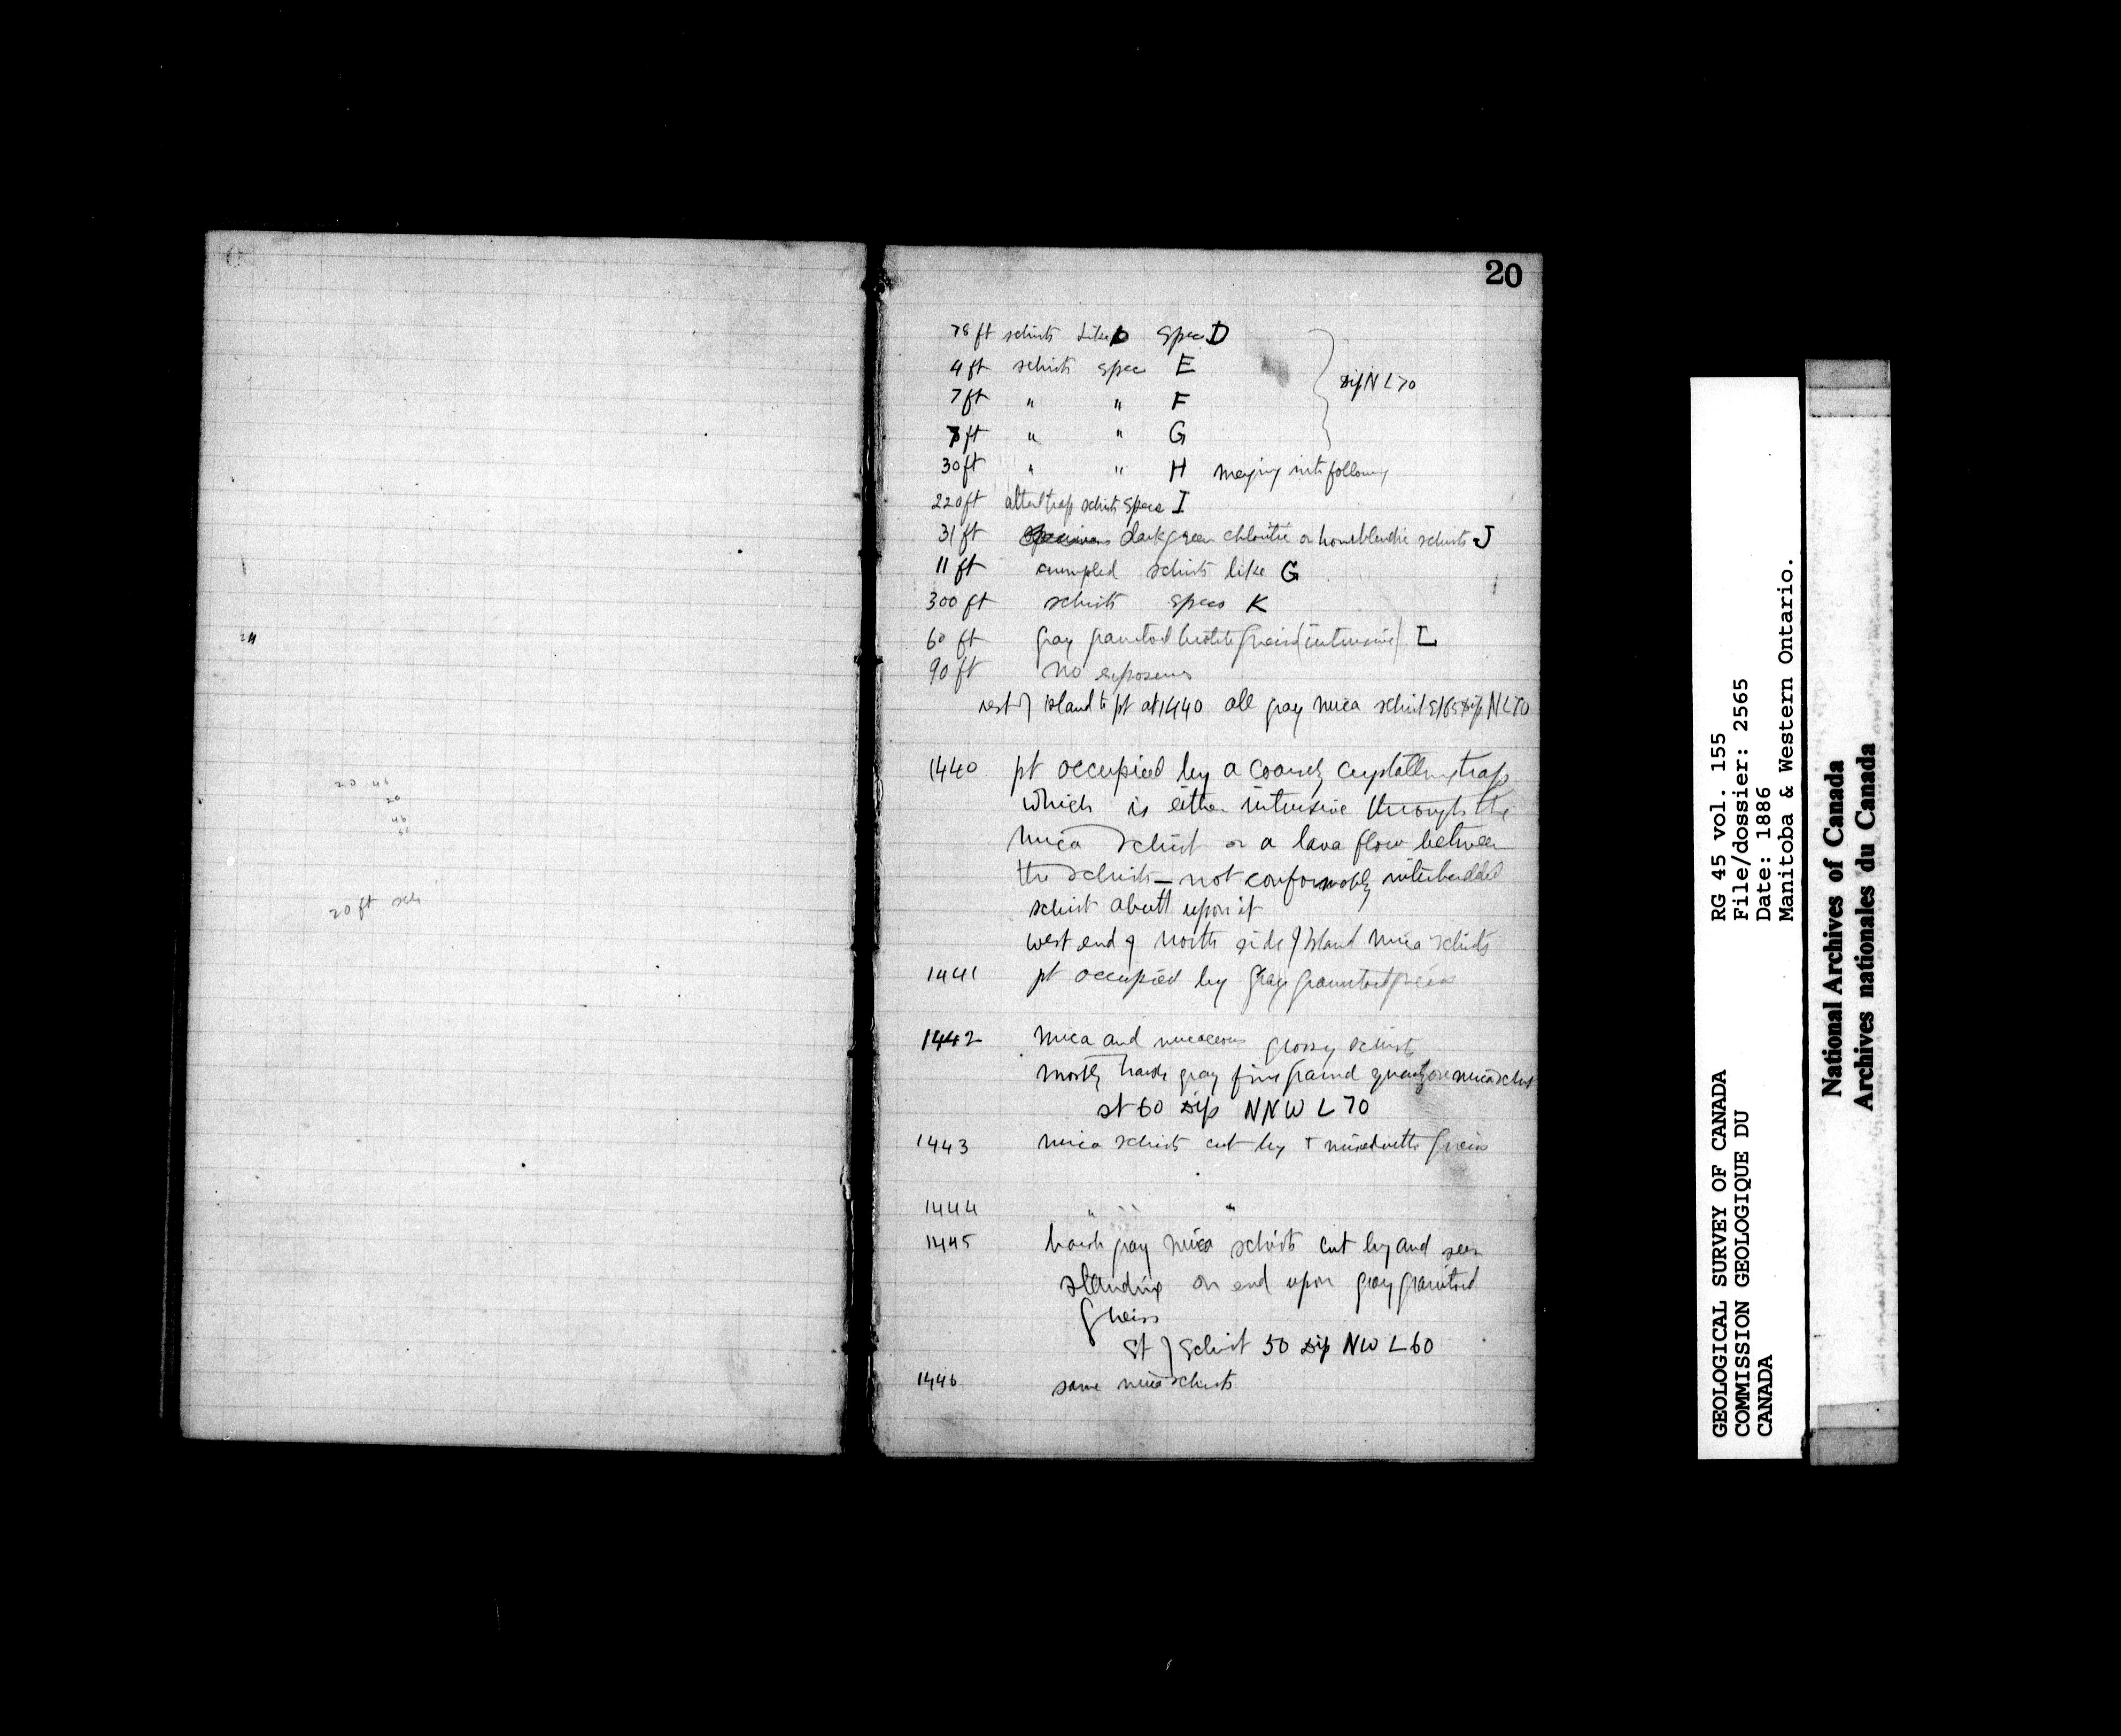 20
78 ft schists like D Spec D
4 ft schists spec E
7 ft " " F
dip N L 70
ft " " G
30 ft " " H merging into following
220 ft altered trap schists Specs I
31 ft Specimens dark green chloritic or hornblendic schists J
11 ft crumpled schists like G
300 ft schists specs K
60 ft gray granitoid biotite gneiss (intrusive) L
90 ft no exposures
rest of island to pt at 1440 all gray mica schist dip N L 70
1440 pt occupied by a coarsely crystalline trap
which is either intrusive through the
mica schist or a lava flow between
the schists — not conformably interbedded
schist abutt upon it
west end of north side of Island mica schists
1441 pt occupied by gray granitoid gneiss
1442 mica and micaceous glossy schists
mostly hard gray fine grained quartzose mica schist
st 60 dip NNW L 70
1443 mica schists cut by + mixed with gneiss
1444 " " "
1445 hard gray mica schists cut by and seen
standing on end upon gray granitoid
gneiss
St of Schist 50 dip NW L 60
1446 same mica schists
20 46
20
46
20 ft sch
GEOLOGICAL SURVEY OF CANADA
COMMISSION GEOLOGIQUE DU
CANADA
RG 45 vol. 155
File/dossier: 2565
Date: 1886
Manitoba & Western Ontario.
National Archives of Canada
Archives nationales du Canada